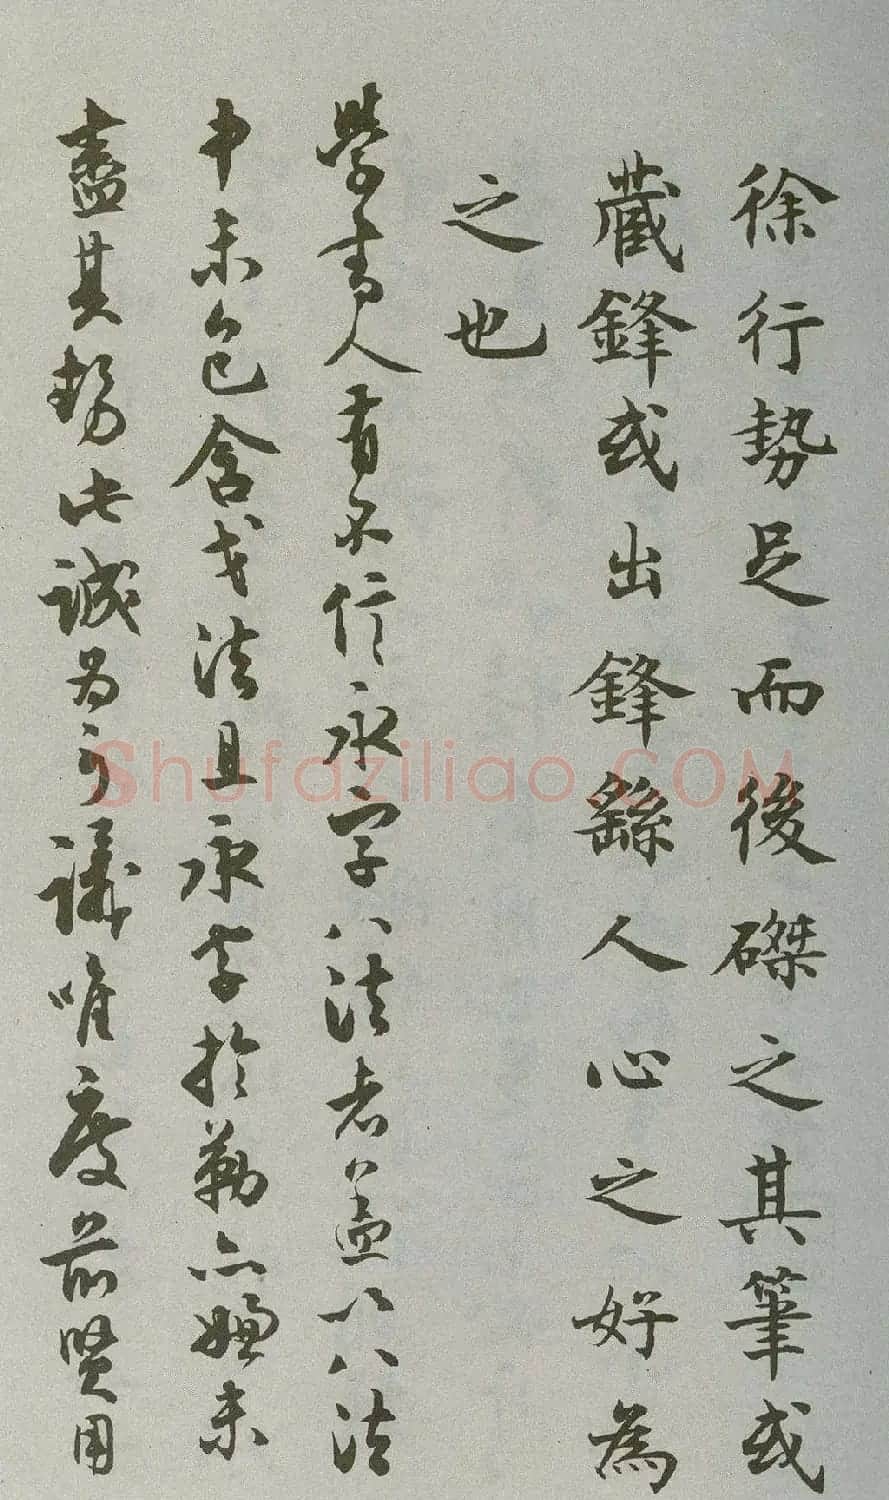 徐行勢足而後磔之其筆或
藏鋒或出鋒繇人心之好為
之也
學書人有不信永字八法者盖以八法
中未包含戈法且永字於勒亦嫌未
盡其勢此誠為可議唯度前賢用
Shufaziliao.COM